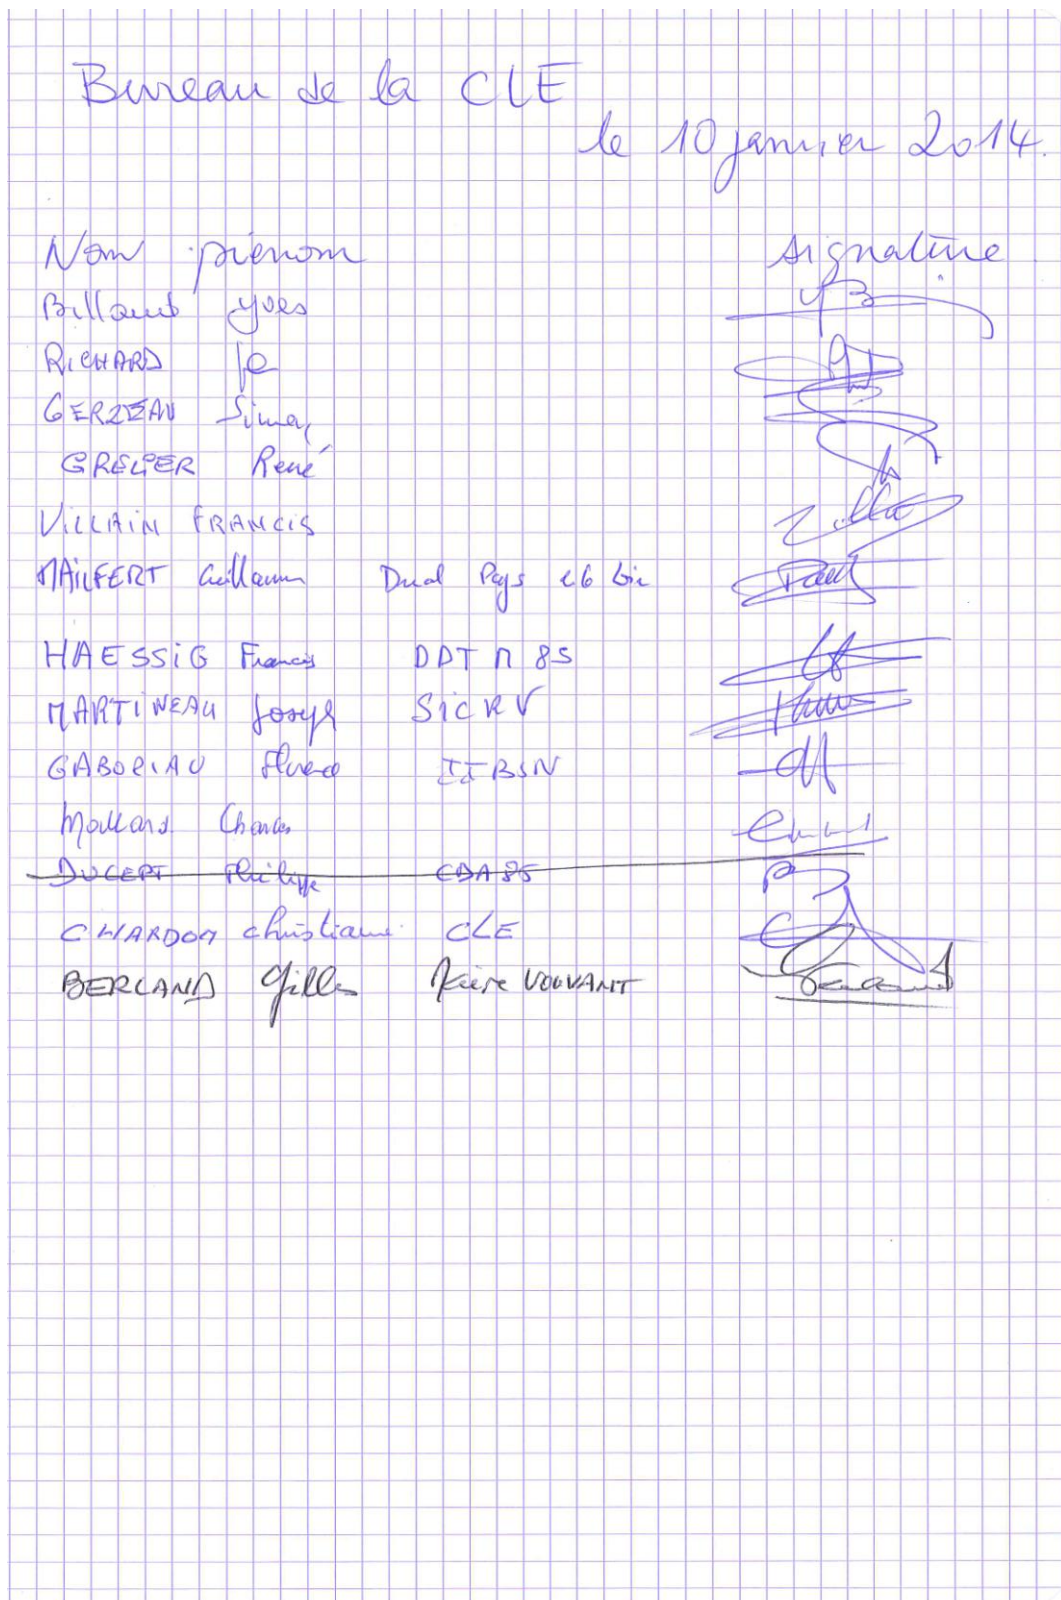 Bureau de la CLE
le 10 janvier 2014.
Nom prénom signature
Billaud Yves
RICHARD
GERZEAU Simon
GRELIER René
VILLAIN FRANCIS
MAILFERT Guillaume Pays
HAESSIG Francis DDTM 85
MARTINEAU Joseph SICRV
GABORIAU Florence IIBSN
Mallard Charles
DUCEPT Philippe CDA85
CHARDON christiane CLE
BERLAND Gilles Maire VOUVANT